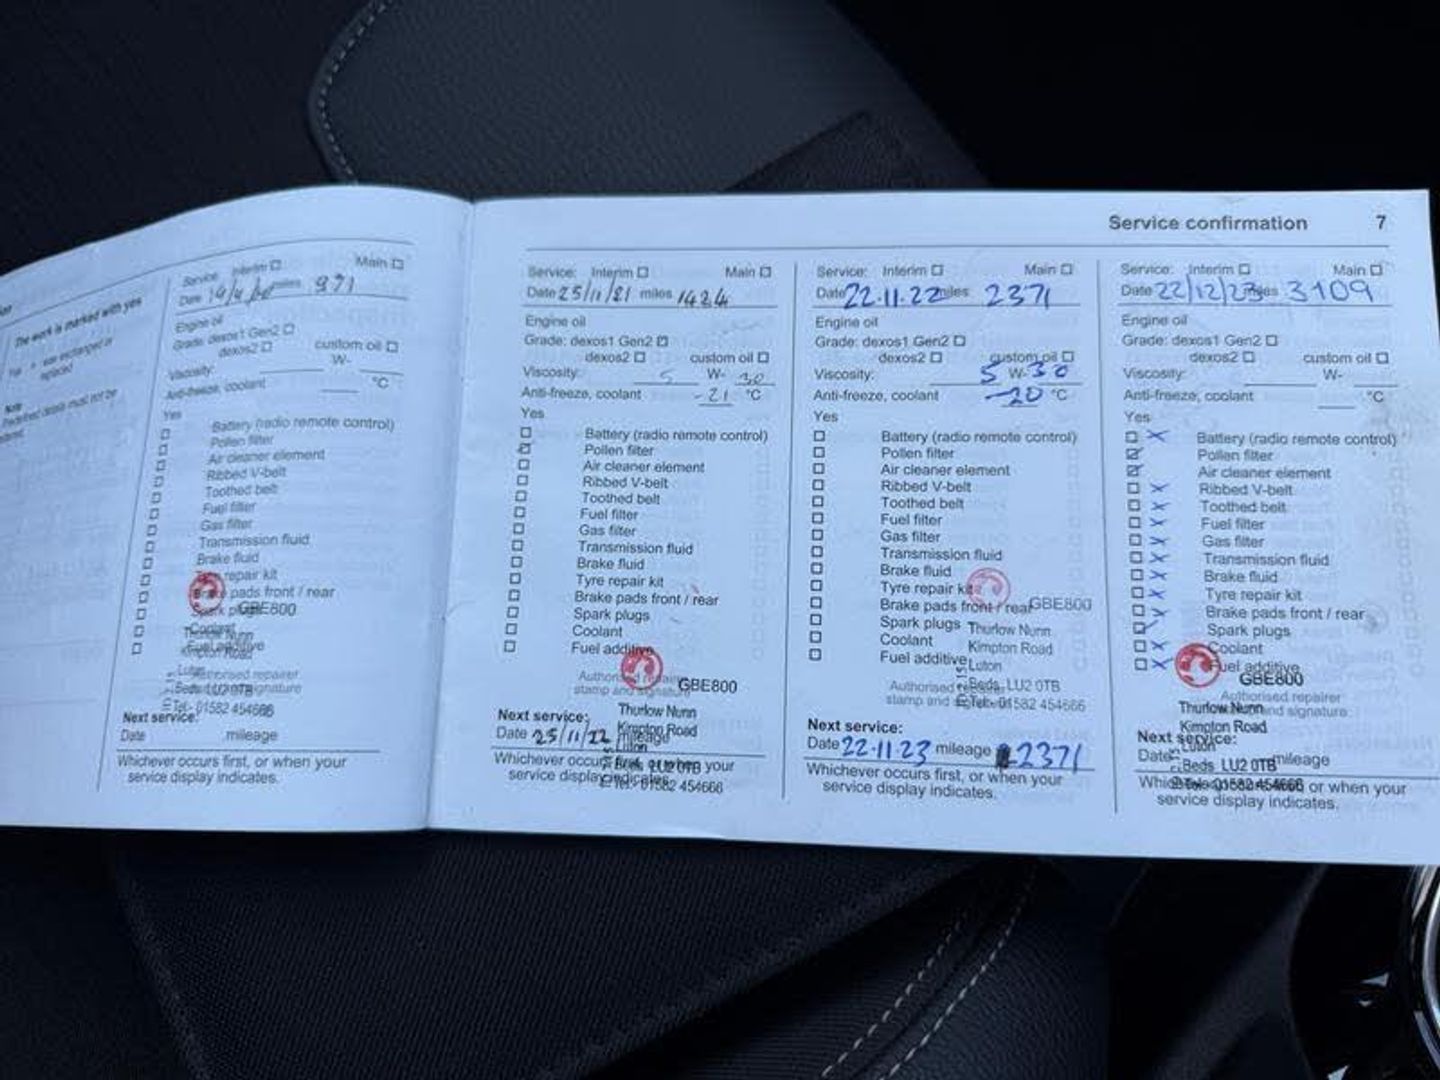 Service confirmation 7
The work is marked with yes
Service: Interim ☐ Main ☐
Date miles 971
Engine oil
Grade: dexos1 Gen2 ☐
dexos2 ☐ custom oil ☐
Viscosity: W-
Anti-freeze, coolant °C
Yes
☐ Battery (radio remote control)
☐ Pollen filter
☐ Air cleaner element
☐ Ribbed V-belt
☐ Toothed belt
☐ Fuel filter
☐ Gas filter
☐ Transmission fluid
☐ Brake fluid
☐ Tyre repair kit
☐ Brake pads front / rear
☐ Spark plugs
☐ Coolant
☐ Fuel additive
GBE800
Thurlow Nunn
Kimpton Road
Luton
Beds. LU2 0TB
Tel:- 01582 454666
Authorised repairer
stamp and signature
Next service:
Date mileage
Whichever occurs first, or when your
service display indicates.
Service: Interim ☐ Main ☐
Date 25/11/21 miles 1424
Engine oil
Grade: dexos1 Gen2 ☑
dexos2 ☐ custom oil ☐
Viscosity: 5 W- 30
Anti-freeze, coolant -21 °C
Yes
☐ Battery (radio remote control)
☑ Pollen filter
☐ Air cleaner element
☐ Ribbed V-belt
☐ Toothed belt
☐ Fuel filter
☐ Gas filter
☐ Transmission fluid
☐ Brake fluid
☐ Tyre repair kit
☐ Brake pads front / rear
☐ Spark plugs
☐ Coolant
☐ Fuel additive
Authorised repairer
stamp and signature
GBE800
Thurlow Nunn
Kimpton Road
Luton
Beds. LU2 0TB
Tel:- 01582 454666
Next service:
Date 25/11/22 mileage
Whichever occurs first, or when your
service display indicates.
Service: Interim ☐ Main ☐
Date 22.11.22 miles 2371
Engine oil
Grade: dexos1 Gen2 ☐
dexos2 ☐ custom oil ☐
Viscosity: 5 W- 30
Anti-freeze, coolant -20 °C
Yes
☐ Battery (radio remote control)
☐ Pollen filter
☐ Air cleaner element
☐ Ribbed V-belt
☐ Toothed belt
☐ Fuel filter
☐ Gas filter
☐ Transmission fluid
☐ Brake fluid
☐ Tyre repair kit
☐ Brake pads front / rear
☐ Spark plugs
☐ Coolant
☐ Fuel additive
GBE800
Thurlow Nunn
Kimpton Road
Luton
Beds. LU2 0TB
Tel:- 01582 454666
Authorised repairer
stamp and signature
Next service:
Date 22.11.23 mileage 2371
Whichever occurs first, or when your
service display indicates.
Service: Interim ☐ Main ☐
Date 22/12/23 miles 3109
Engine oil
Grade: dexos1 Gen2 ☐
dexos2 ☐ custom oil ☐
Viscosity: W-
Anti-freeze, coolant °C
Yes
☐ x Battery (radio remote control)
☑ Pollen filter
☑ Air cleaner element
☐ x Ribbed V-belt
☐ x Toothed belt
☐ x Fuel filter
☐ x Gas filter
☐ x Transmission fluid
☐ x Brake fluid
☐ x Tyre repair kit
☐ x Brake pads front / rear
☑ Spark plugs
☐ x Coolant
☐ x Fuel additive
GBE800
Authorised repairer
stamp and signature
Thurlow Nunn
Kimpton Road
Luton
Beds. LU2 0TB
Tel:- 01582 454666
Next service:
Date mileage
Whichever occurs first, or when your
service display indicates.